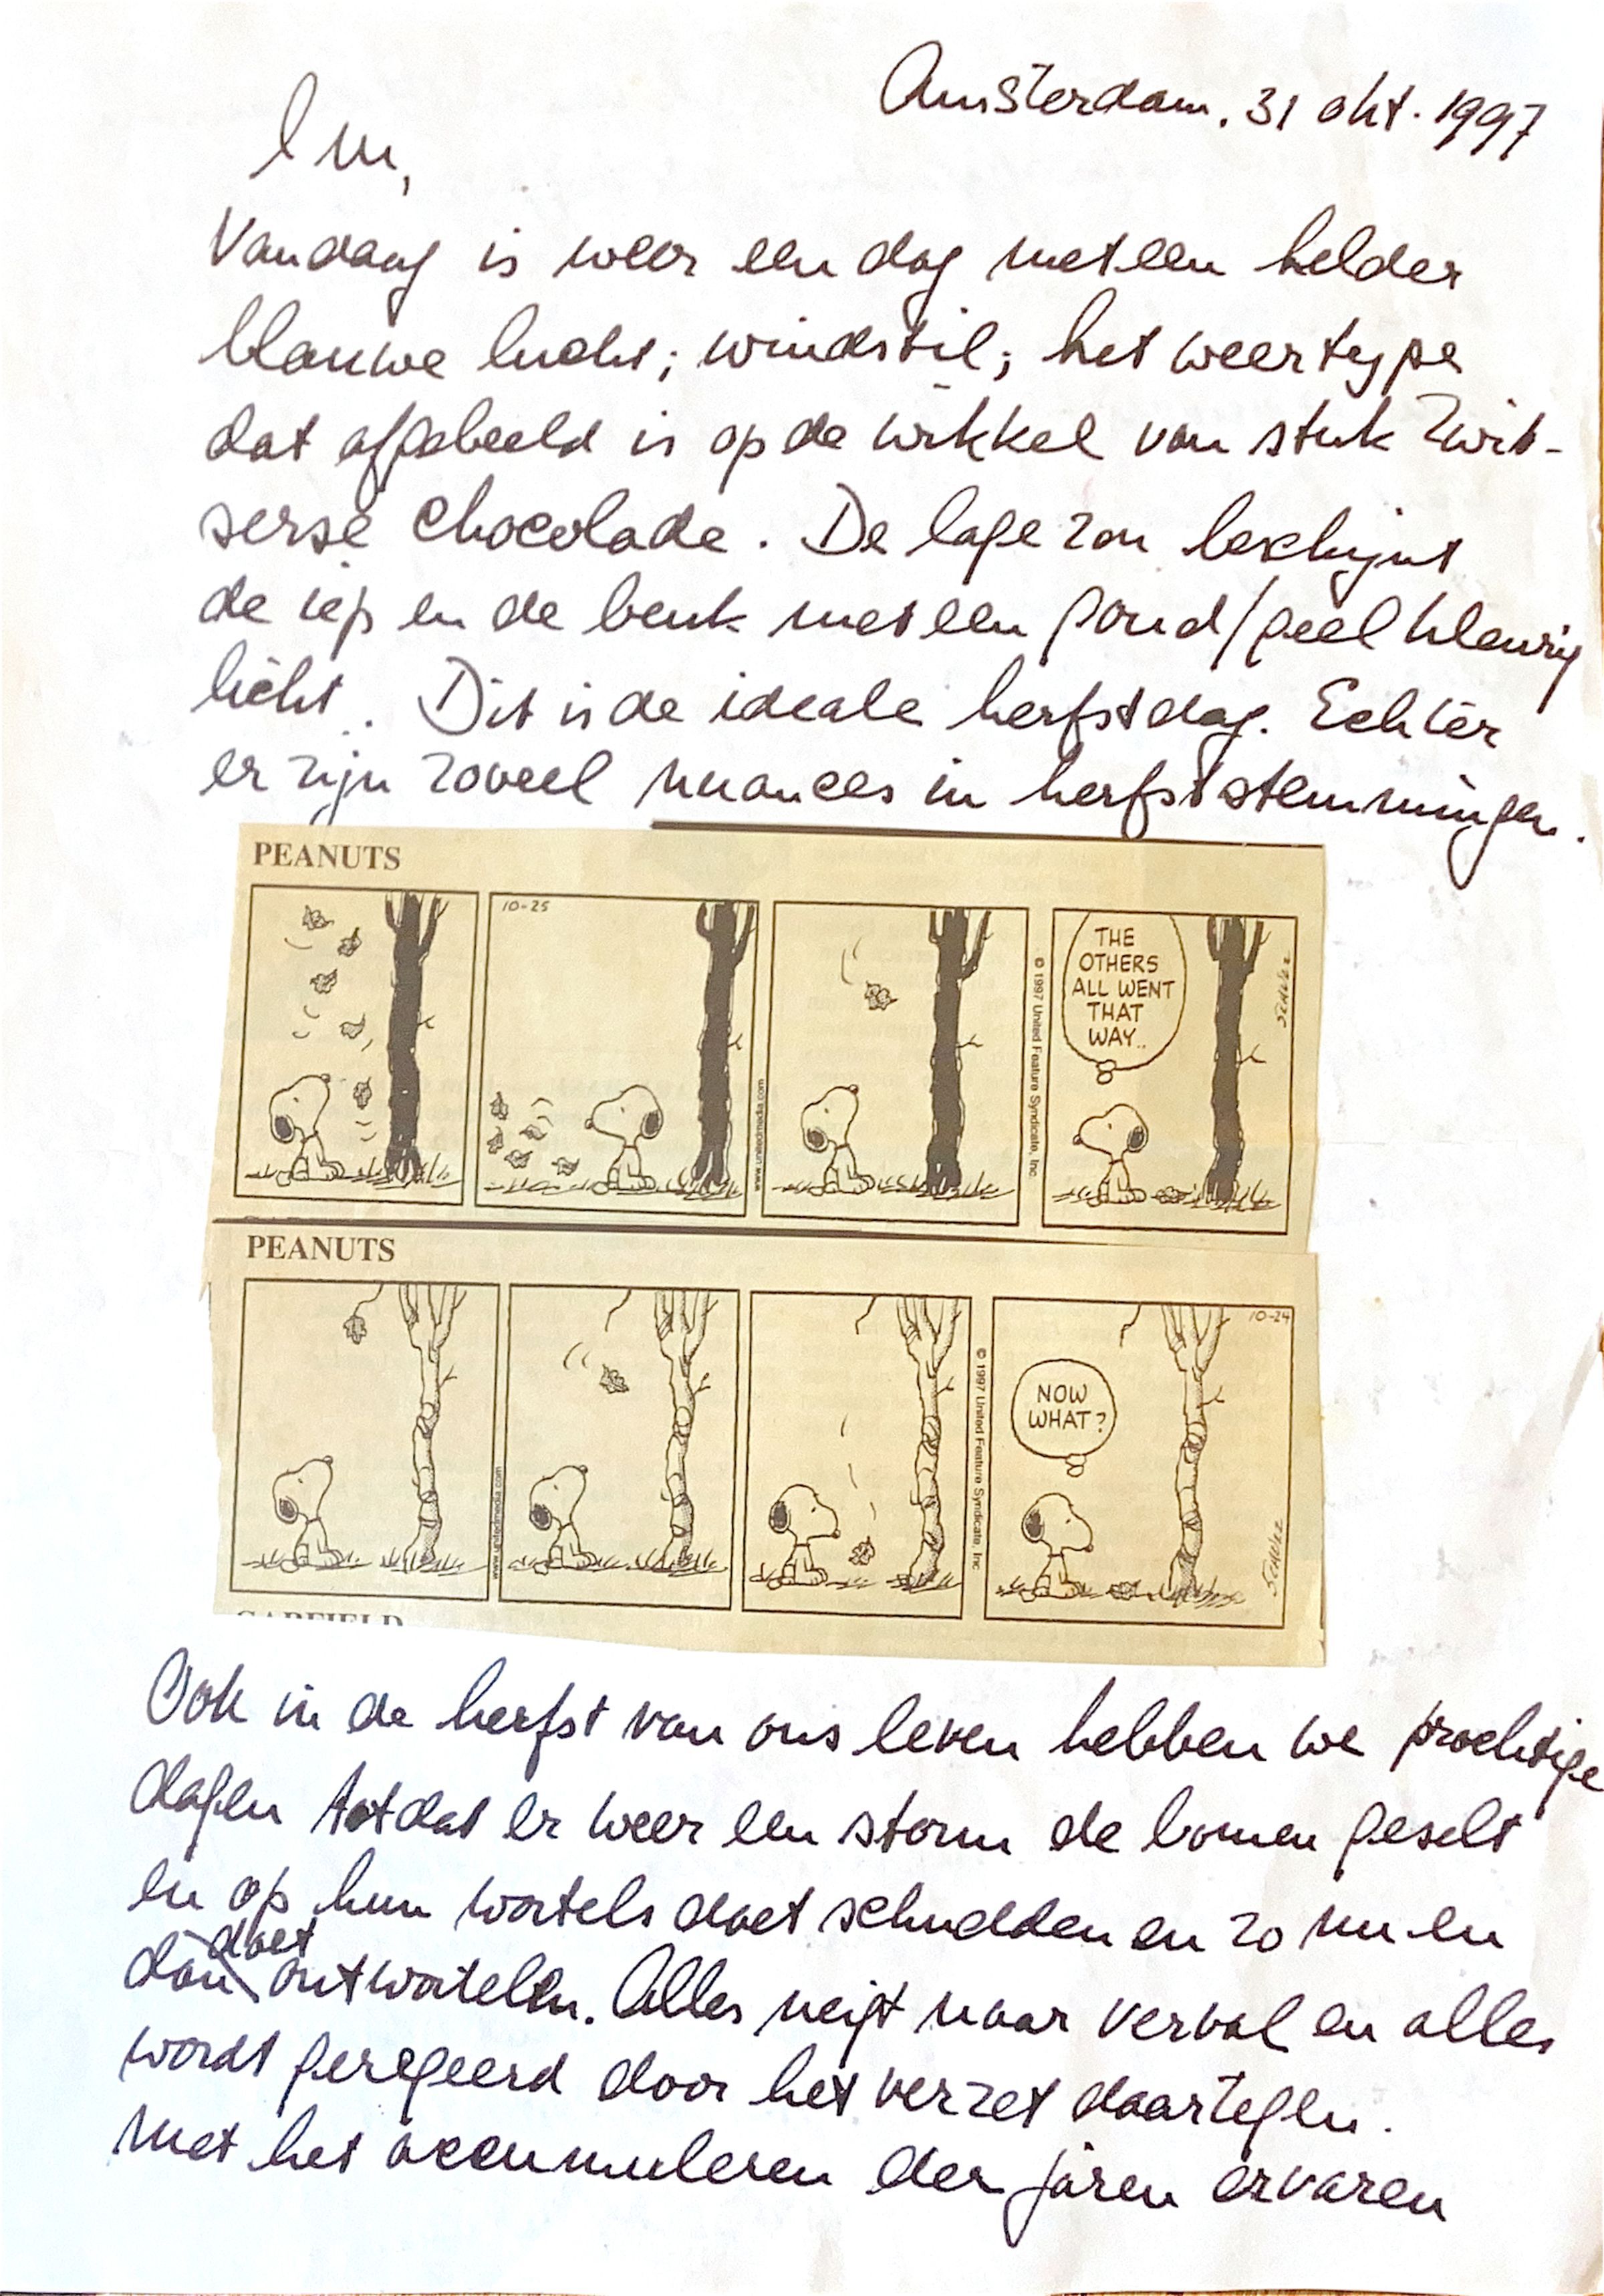 Amsterdam, 31 okt. 1997
Im,
Vandaag is weer een dag met een helder
blauwe lucht; windstil; het weertype
dat afgebeeld is op de wikkel van stuk Zwit-
serse chocolade. De lage zon beschijnt
de iep en de beuk met een goud/geel kleurig
licht. Dit is de ideale herfstdag. Echter
er zijn zoveel nuances in herfststemmingen.
PEANUTS
10-25
www.unitedmedia.com
© 1997 United Feature Syndicate, Inc.
THE
OTHERS
ALL WENT
THAT
WAY..
SCHULZ
PEANUTS
www.unitedmedia.com
© 1997 United Feature Syndicate, Inc.
10-24
NOW
WHAT?
SCHULZ
GARFIELD
Ook in de herfst van ons leven hebben we prachtige
dagen totdat er weer een storm de bomen geselt
en op hun wortels doet schudden en zo nu en
dan doet ontwortelen. Alles neigt naar verval en alles
wordt geregeerd door het verzet daartegen.
Met het accumuleren der jaren ervaren